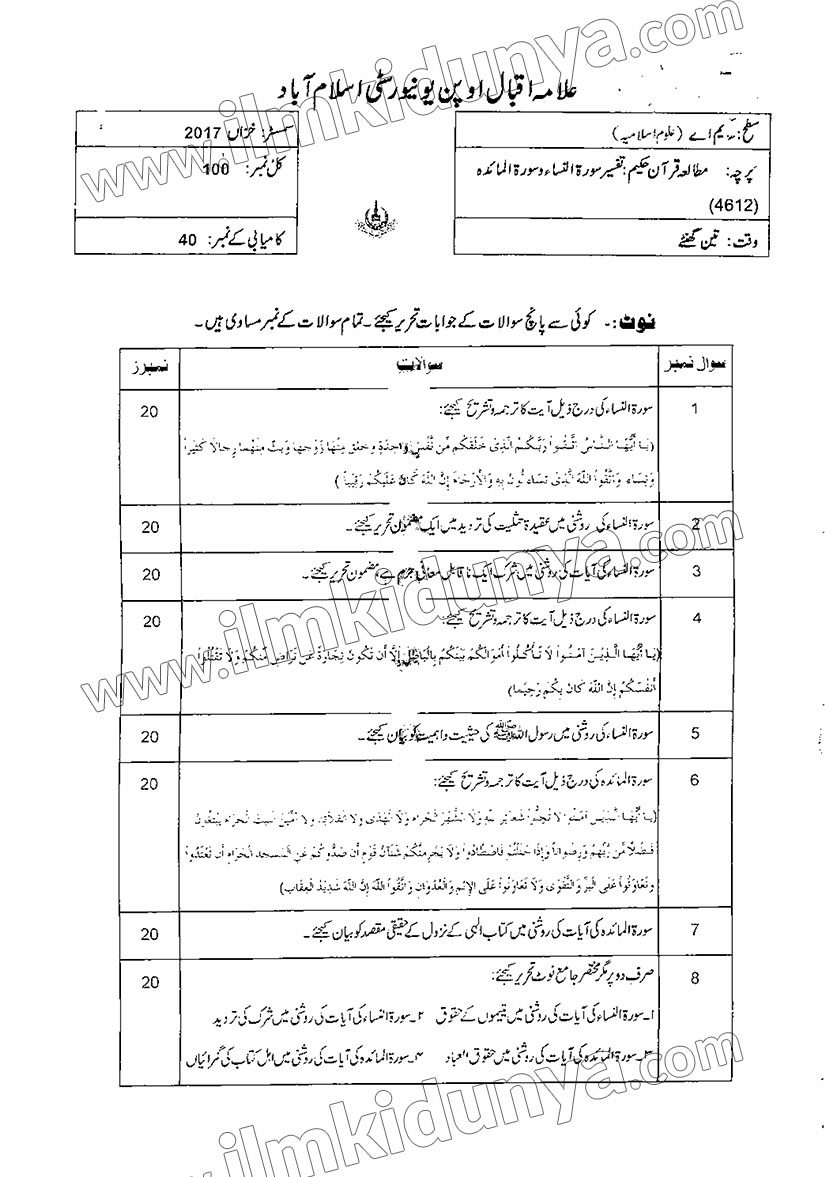 علامہ اقبال اوپن یونیورسٹی اسلام آباد
سطح: ایم اے (علوم اسلامیہ)
پرچہ: مطالعہ قرآن حکیم: تفسیر سورۃ النساء و سورۃ المائدہ
(4612)
وقت: تین گھنٹے
سمسٹر: خزاں 2017
کل نمبر: 100
کامیابی کے نمبر: 40
نوٹ:- کوئی سے پانچ سوالات کے جوابات تحریر کیجئے۔ تمام سوالات کے نمبر مساوی ہیں۔
سوال نمبر سوالات نمبرز
1 سورۃ النساء کی درج ذیل آیت کا ترجمہ و تشریح کیجئے: 20
(يَا أَيُّهَا النَّاسُ اتَّقُواْ رَبَّكُمُ الَّذِي خَلَقَكُم مِّن نَّفْسٍ وَاحِدَةٍ وَخَلَقَ مِنْهَا زَوْجَهَا وَبَثَّ مِنْهُمَا رِجَالاً كَثِيراً
وَنِسَاء وَاتَّقُواْ اللّهَ الَّذِي تَسَاءلُونَ بِهِ وَالأَرْحَامَ إِنَّ اللّهَ كَانَ عَلَيْكُمْ رَقِيباً)
2 سورۃ النساء کی روشنی میں عقیدۂ تثلیث کی تردید میں ایک مضمون تحریر کیجئے۔ 20
3 سورۃ النساء کی آیات کی روشنی میں شرک ایک ناقابل معافی جرم ہے، مضمون تحریر کیجئے۔ 20
4 سورۃ النساء کی درج ذیل آیت کا ترجمہ و تشریح کیجئے: 20
(يَا أَيُّهَا الَّذِينَ آمَنُواْ لاَ تَأْكُلُواْ أَمْوَالَكُمْ بَيْنَكُمْ بِالْبَاطِلِ إِلاَّ أَن تَكُونَ تِجَارَةً عَن تَرَاضٍ مِّنكُمْ وَلاَ تَقْتُلُواْ
أَنفُسَكُمْ إِنَّ اللّهَ كَانَ بِكُمْ رَحِيماً)
5 سورۃ النساء کی روشنی میں رسول اللہ ﷺ کی حیثیت و اہمیت کو بیان کیجئے۔ 20
6 سورۃ المائدہ کی درج ذیل آیت کا ترجمہ و تشریح کیجئے: 20
(يَا أَيُّهَا الَّذِينَ آمَنُواْ لاَ تُحِلُّواْ شَعَآئِرَ اللّهِ وَلاَ الشَّهْرَ الْحَرَامَ وَلاَ الْهَدْيَ وَلاَ الْقَلآئِدَ وَلا آمِّينَ الْبَيْتَ الْحَرَامَ يَبْتَغُونَ
فَضْلاً مِّن رَّبِّهِمْ وَرِضْوَاناً وَإِذَا حَلَلْتُمْ فَاصْطَادُواْ وَلاَ يَجْرِمَنَّكُمْ شَنَآنُ قَوْمٍ أَن صَدُّوكُمْ عَنِ الْمَسْجِدِ الْحَرَامِ أَن تَعْتَدُواْ
وَتَعَاوَنُواْ عَلَى الْبرِّ وَالتَّقْوَى وَلاَ تَعَاوَنُواْ عَلَى الإِثْمِ وَالْعُدْوَانِ وَاتَّقُواْ اللّهَ إِنَّ اللّهَ شَدِيدُ الْعِقَابِ)
7 سورۃ المائدہ کی آیات کی روشنی میں کتاب الٰہی کے نزول کے حقیقی مقصد کو بیان کیجئے۔ 20
8 صرف دو پر مگر مختصر جامع نوٹ تحریر کیجئے: 20
۱۔سورۃ النساء کی آیات کی روشنی میں یتیموں کے حقوق ۲۔سورۃ النساء کی آیات کی روشنی میں شرک کی تردید
۳۔سورۃ المائدہ کی آیات کی روشنی میں حقوق العباد ۴۔سورۃ المائدہ کی آیات کی روشنی میں اہل کتاب کی گمراہیاں
www.ilmkidunya.com
www.ilmkidunya.com
www.ilmkidunya.com